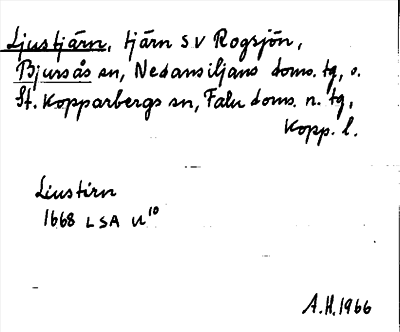 Ljustjärn, tjärn SV Rogsjön,
Bjursås sn, Nedansiljans doms. tg, o.
St. Kopparbergs sn, Falu doms. n. tg,
Kopp. l.
Liustirn
1668 LSA U¹⁰
A.H. 1966